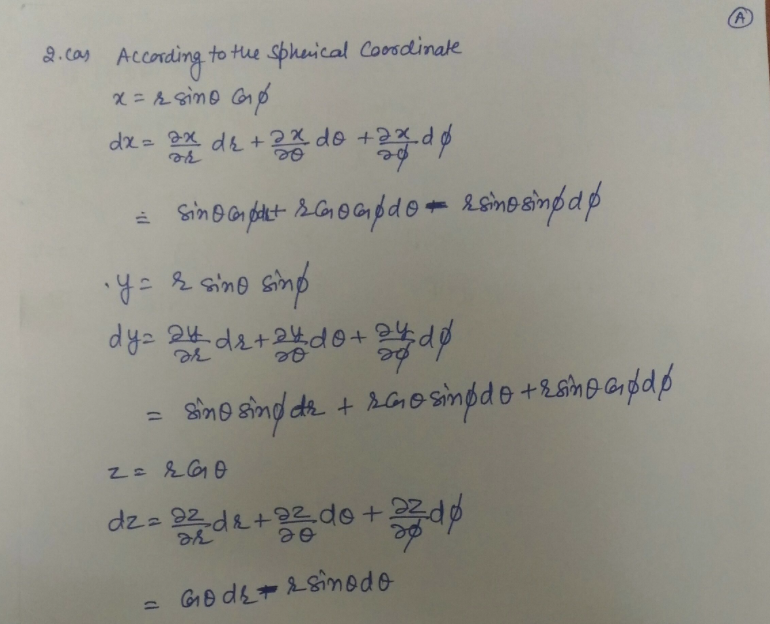 Ⓐ
2.(a) According to the Spherical Coordinate
x = r sinθ cosϕ
dx = ∂x/∂r dr + ∂x/∂θ dθ + ∂x/∂ϕ dϕ
= sinθ cosϕ dr + r cosθ cosϕ dθ - r sinθ sinϕ dϕ
. y = r sinθ sinϕ
dy = ∂y/∂r dr + ∂y/∂θ dθ + ∂y/∂ϕ dϕ
= sinθ sinϕ dr + r cosθ sinϕ dθ + r sinθ cosϕ dϕ
z = r cosθ
dz = ∂z/∂r dr + ∂z/∂θ dθ + ∂z/∂ϕ dϕ
= cosθ dr - r sinθ dθ